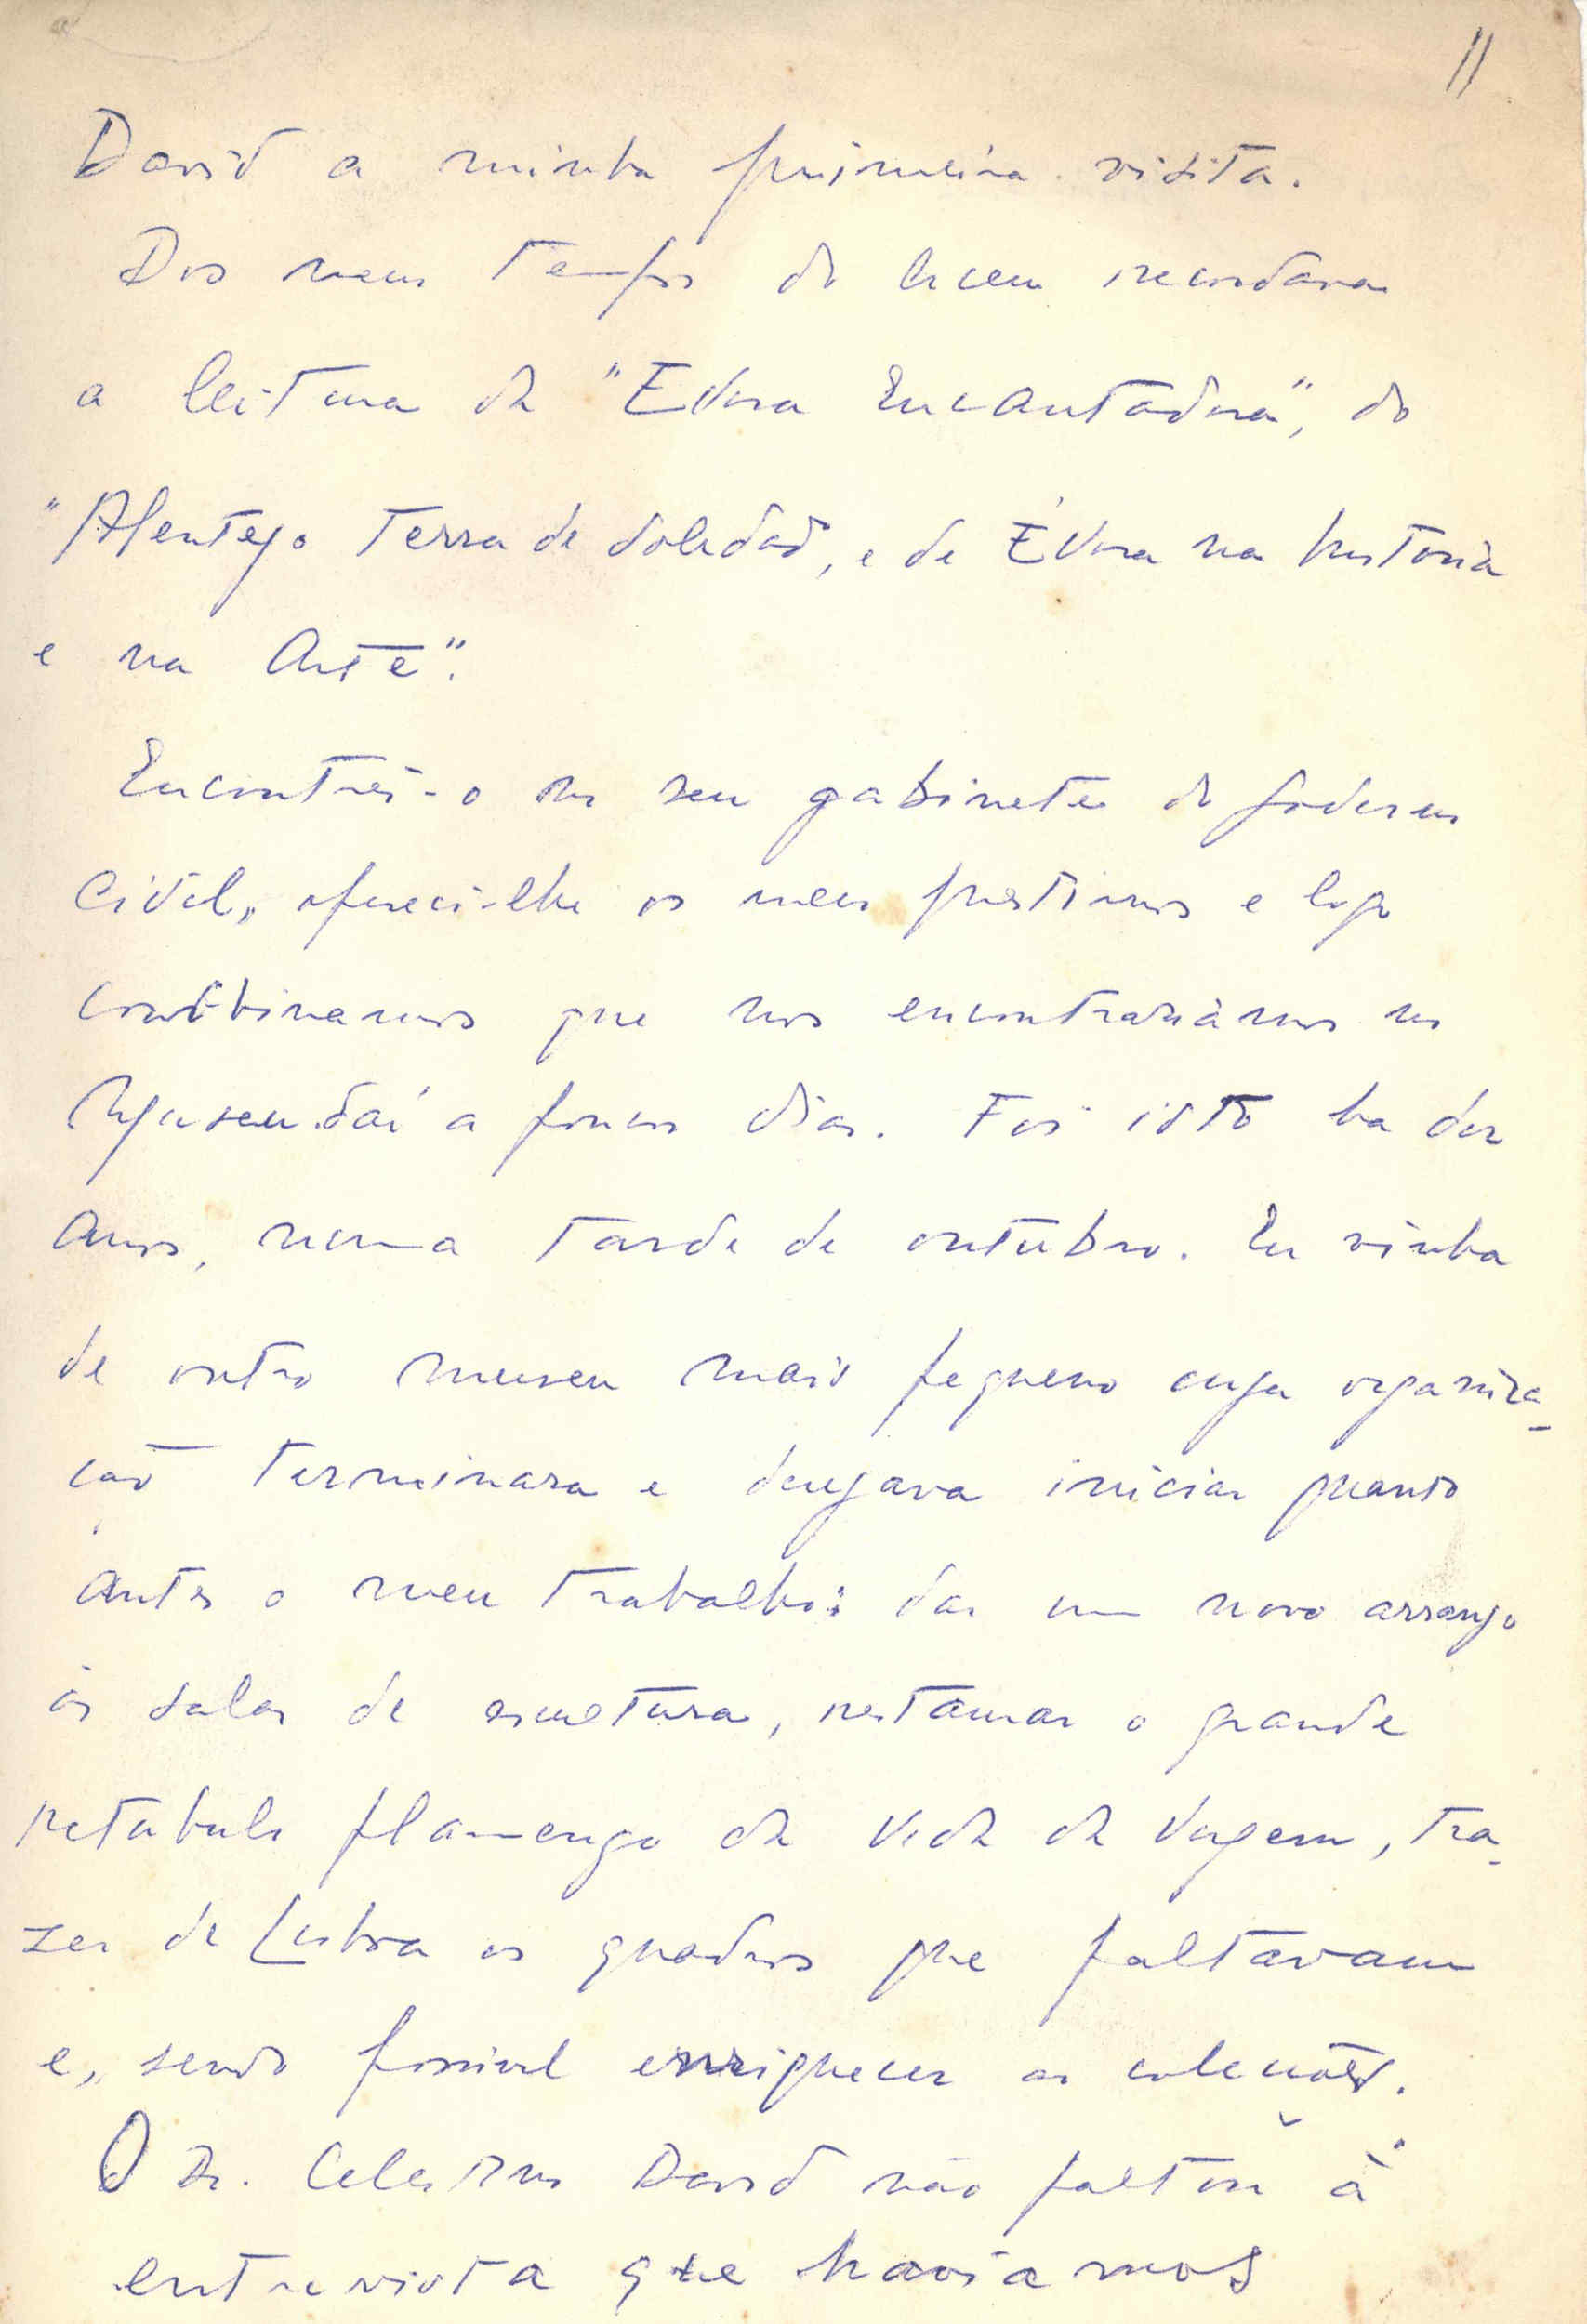 11
David a minha primeira visita.
Dos meus tempos do liceu recordava
a leitura da "Evora Encantadora", do
"Alentejo Terra de Soledad, e de Évora na historia
e na Arte".
Encontrei-o no seu gabinete do Governo
Civil, ofereci-lhe os meus prestimos e logo
combinamos que nos encontrariamos no
Museu daí a poucos dias. Foi isto ha dez
anos, numa tarde de outubro. Eu vinha
de outro museu mais pequeno cuja organiza-
ção terminara e desejava iniciar quanto
antes o meu trabalho: dar um novo arranjo
às salas de escultura, restaurar o grande
retabulo flamengo da Vida da Virgem, tra-
zer de Lisboa os quadros que faltavam
e, sendo possivel enriquecer as coleções.
O Dr. Celestino David não faltou à
entrevista que haviamos